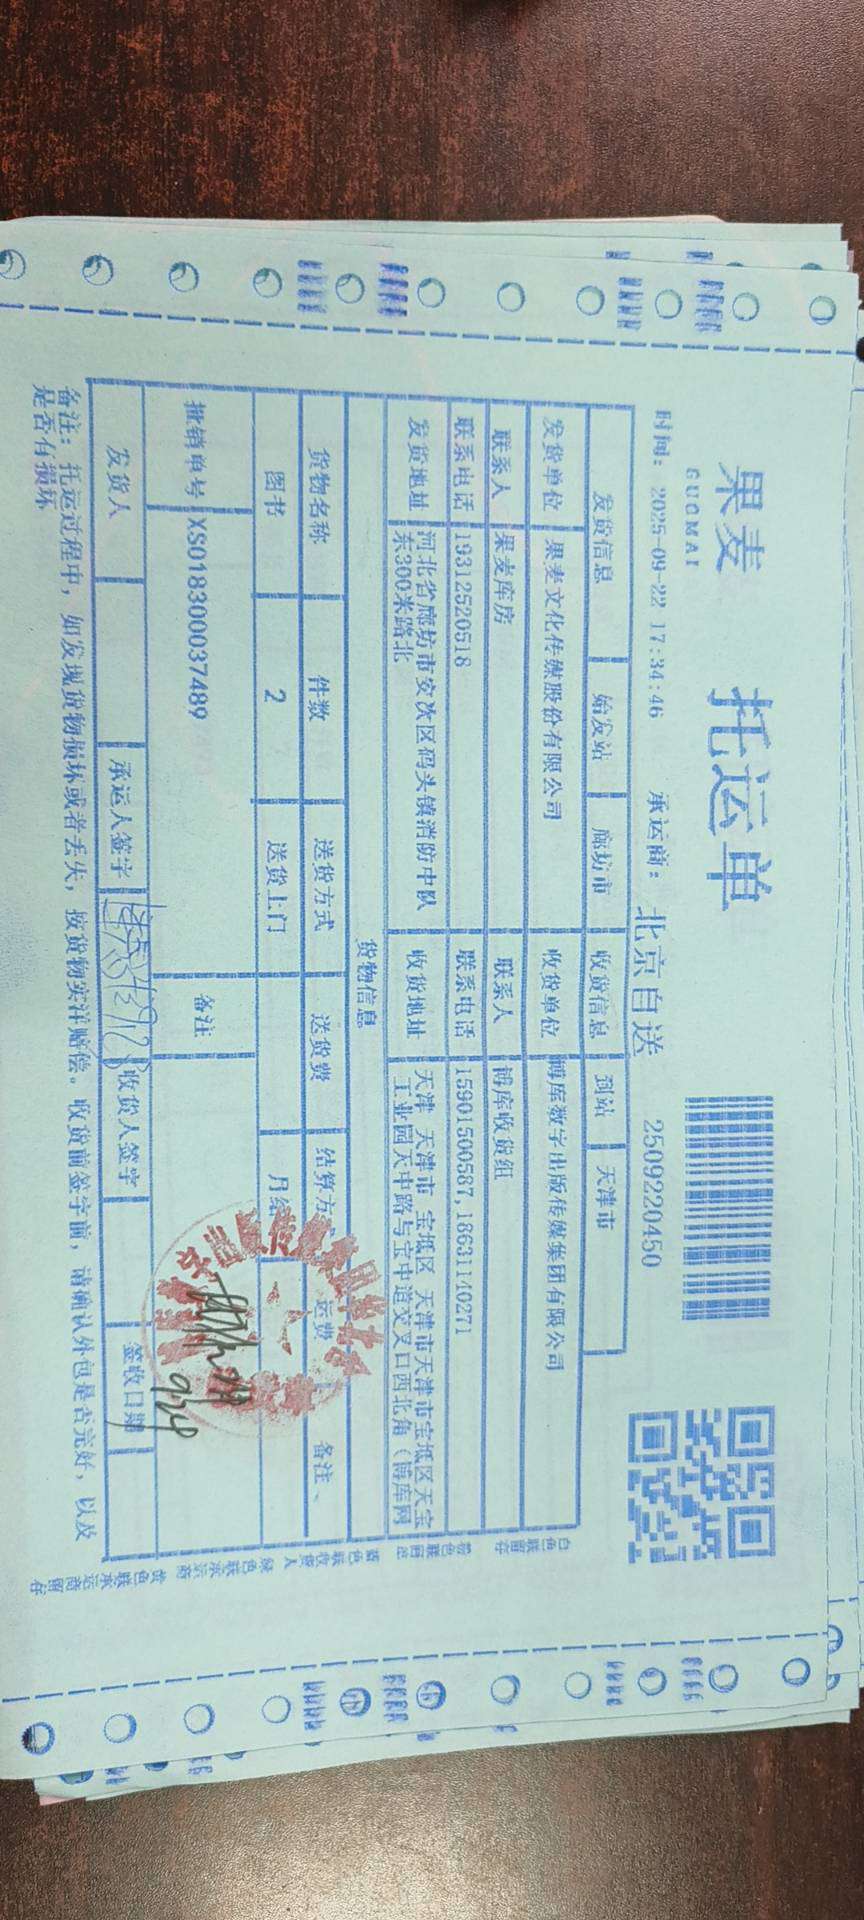 果麦
GUOMAI
托运单
时间：2025-09-22 17:34:46 承运商：北京自送 2509220450
发货信息 始发站 廊坊市 收货信息 到站 天津市
发货单位 果麦文化传媒股份有限公司 收货单位 博库数字出版传媒集团有限公司
联系人 果麦库房 联系人 博库收货组
联系电话 19312520518 联系电话 15901500587,18631140271
发货地址 河北省廊坊市安次区码头镇消防中队
东300米路北 收货地址 天津 天津市 宝坻区 天津市天津市宝坻区天宝
工业园天中路与宝中道交叉口西北角（博库网
货物信息
货物名称 件数 送货方式 送货费 结算方 运费 备注、
图书 2 送货上门 月结
批销单号 XS018300037489 备注
发货人 承运人签字 收货人签字 签收日期
9.24
备注：托运过程中，如发现货物损坏或者丢失，按货物实洋赔偿。收货前签字前，请确认外包是否完好，以及
是否有损坏
白色联留存
蓝色联收货人
绿色联承运商
黄色联承运商留存